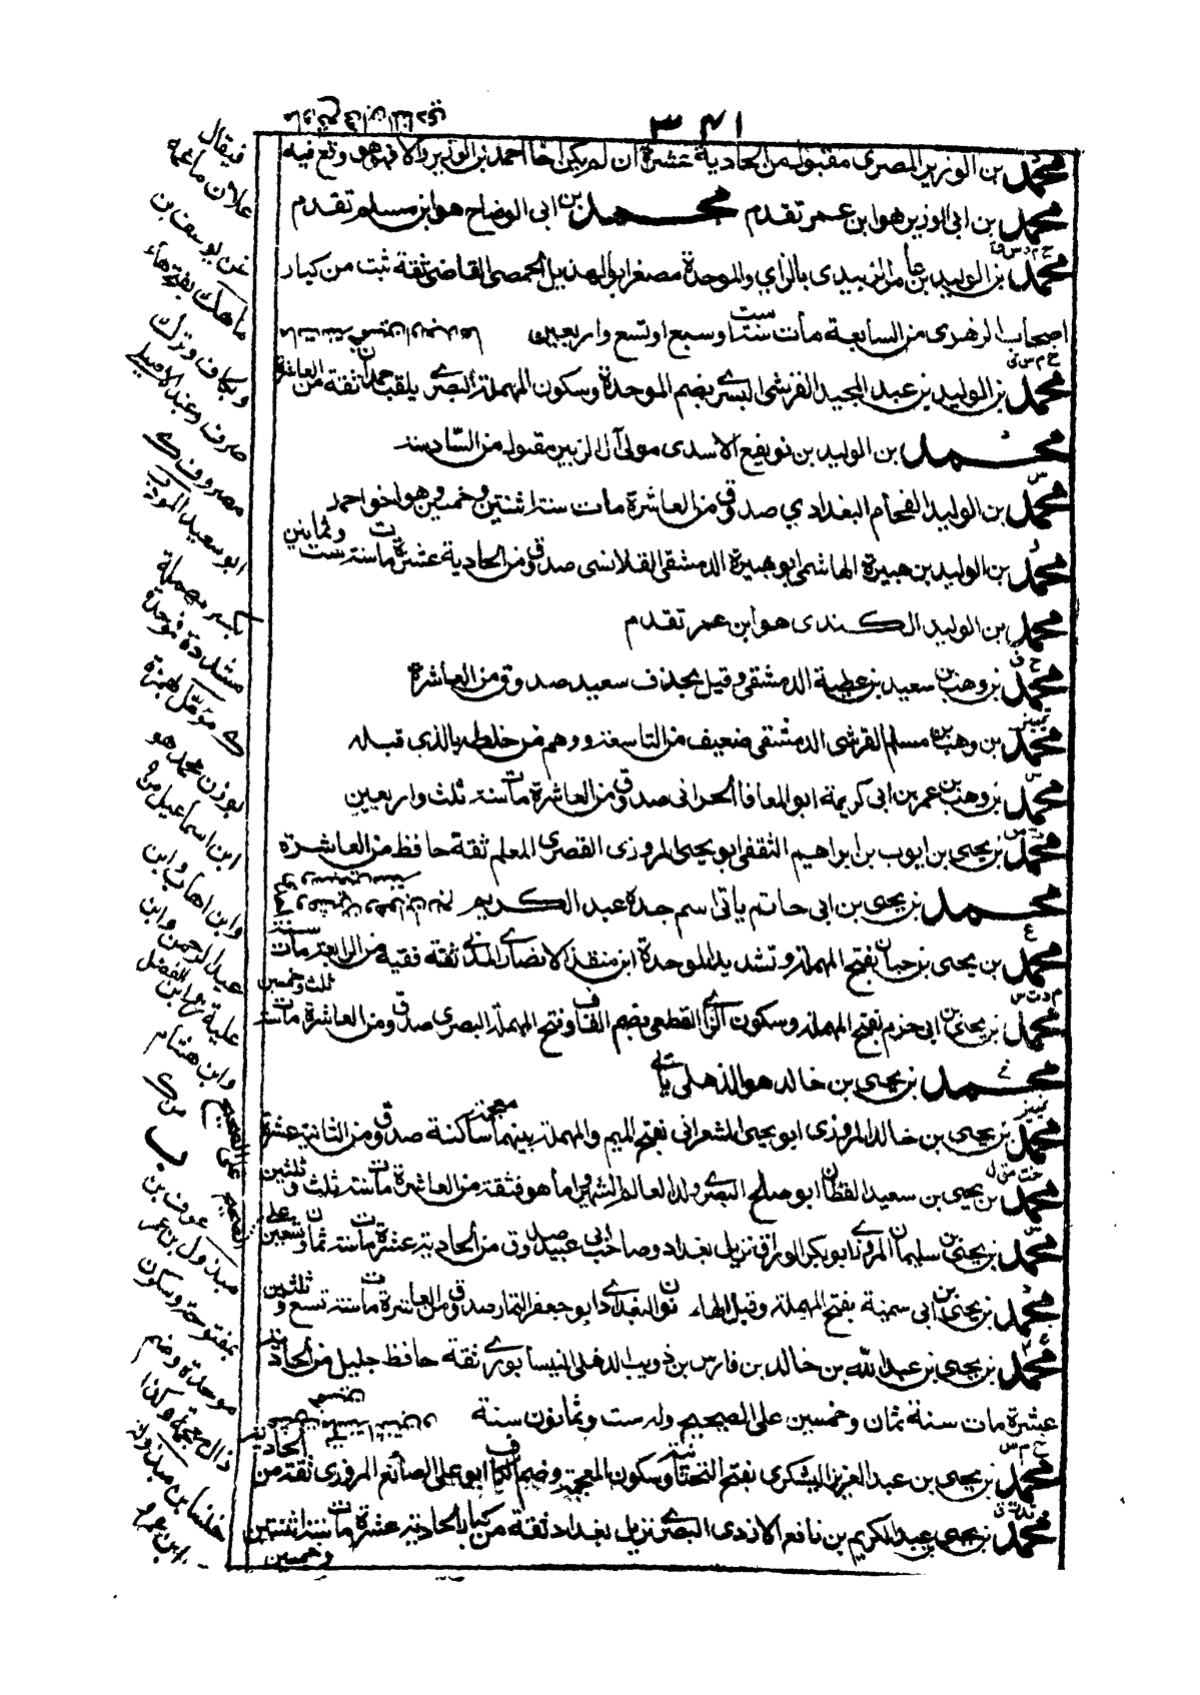 ٣٤١
محمد بن الوزير المصرى مقبول من الحادية عشرة ان لم يكن اخا احمد بن الوزير والا فهو هو وقع فيه
محمد بن ابى الوزير هو ابن عمر تقدم محمد بن ابى الوضاح هو ابن مسلم تقدم
محمد بن الوليد بن عامر الزبيدى بالزاي والموحدة مصغر ابو الهذيل الحمصى القاضى ثقة ثبت من كبار
اصحاب الزهرى من السابعة مات سنة ست او سبع او تسع واربعين
محمد بن الوليد بن عبد المجيد القرشى البسرى بضم الموحدة وسكون المهملة البصرى يلقب حمدان ثقة من العاشرة
محمد بن الوليد بن نويفع الاسدى مولى آل الزبير مقبول من السادسة
محمد بن الوليد الفحام البغدادي صدوق من العاشرة مات سنة اثنتين وخمسين وهو اخو احمد
محمد بن الوليد بن هبيرة الهاشمى ابو هبيرة الدمشقى القلانسى صدوق من الحادية عشرة مات سنة ست وثمانين
محمد بن الوليد الكندى هو ابن عمر تقدم
محمد بن وهب بن سعيد بن عطية الدمشقى وقيل بحذف سعيد صدوق من العاشرة
محمد بن وهب بن مسلم القرشى الدمشقى ضعيف من التاسعة ووهم من خلطه بالذي قبله
محمد بن وهب بن عمر بن ابى كريمة ابو المعافا الحرانى صدوق من العاشرة مات سنة ثلث واربعين
محمد بن يحيى بن ايوب بن ابراهيم الثقفى ابو يحيى المروزى القصرى المعلم ثقة حافظ من العاشرة
محمد بن يحيى بن ابى حاتم ياتى اسم جده عبد الكريم
محمد بن يحيى بن حبان بفتح المهملة وتشديد الموحدة ابن منقذ الانصارى المدنى ثقة فقيه من الرابعة مات سنة
محمد بن يحيى بن ابى حزم بفتح المهملة وسكون الزاى القطعى بضم القاف وفتح المهملة البصرى صدوق من العاشرة مات سنة ثلث وخمسين
محمد بن يحيى بن خالد هو الذهلى ياتى
محمد بن يحيى بن خالد المروزى ابو يحيى المشعرانى بفتح الميم والمهملة بينهما معجمة ساكنة صدوق من الثانية عشرة
محمد بن يحيى بن سعيد القطان ابو صالح البصرى ولد العالم الشهير اما هو فثقة من العاشرة مات سنة ثلث وثلثين
محمد بن يحيى بن سليمان المروزى ابو بكر الوراق نزيل بغداد وصاحب ابى عبيد صدوق من الحادية عشرة مات سنة ثمان وتسعين
محمد بن يحيى بن ابى سمينة بفتح المهملة وقبل الهاء نون البغدادى ابو جعفر التمار صدوق من العاشرة مات سنة تسع وثلثين
محمد بن يحيى بن عبد الله بن خالد بن فارس بن ذويب الذهلى النيسابورى ثقة حافظ جليل من الحادية
عشرة مات سنة ثمان وخمسين على الصحيح وله ست وثمانون سنة
محمد بن يحيى بن عبد العزيز اليشكرى بفتح التحتانية وسكون المعجمة وضم الكاف ابو على الصائغ المروزى ثقة من الحادية
محمد بن يحيى بن عبد الكريم بن نافع الازدى البصرى نزيل بغداد ثقة من كبار الحادية عشرة مات سنة اثنتين وخمسين
فيقال
علان ماغمه
عن يوسف بن
ماهك بفتح هاء
وبكاف وترك
صرف وعند الاصيلى
مصروف ك
ابو سعيد المودب
بكسر مهملة
مشددة فموحدة
ك مؤمل بهمزة
بوزن محمد هو
ابن اسماعيل
وابن اهاب وابن
عبد الرحمن وابن
علية وابن الفضل
وابن هشام
عوف بن
مبذول بن عمر
بمفتوحة وسكون
موحدة وضم
ذال معجمة وكذا
خنساء بن مبذول
ابن عمرو